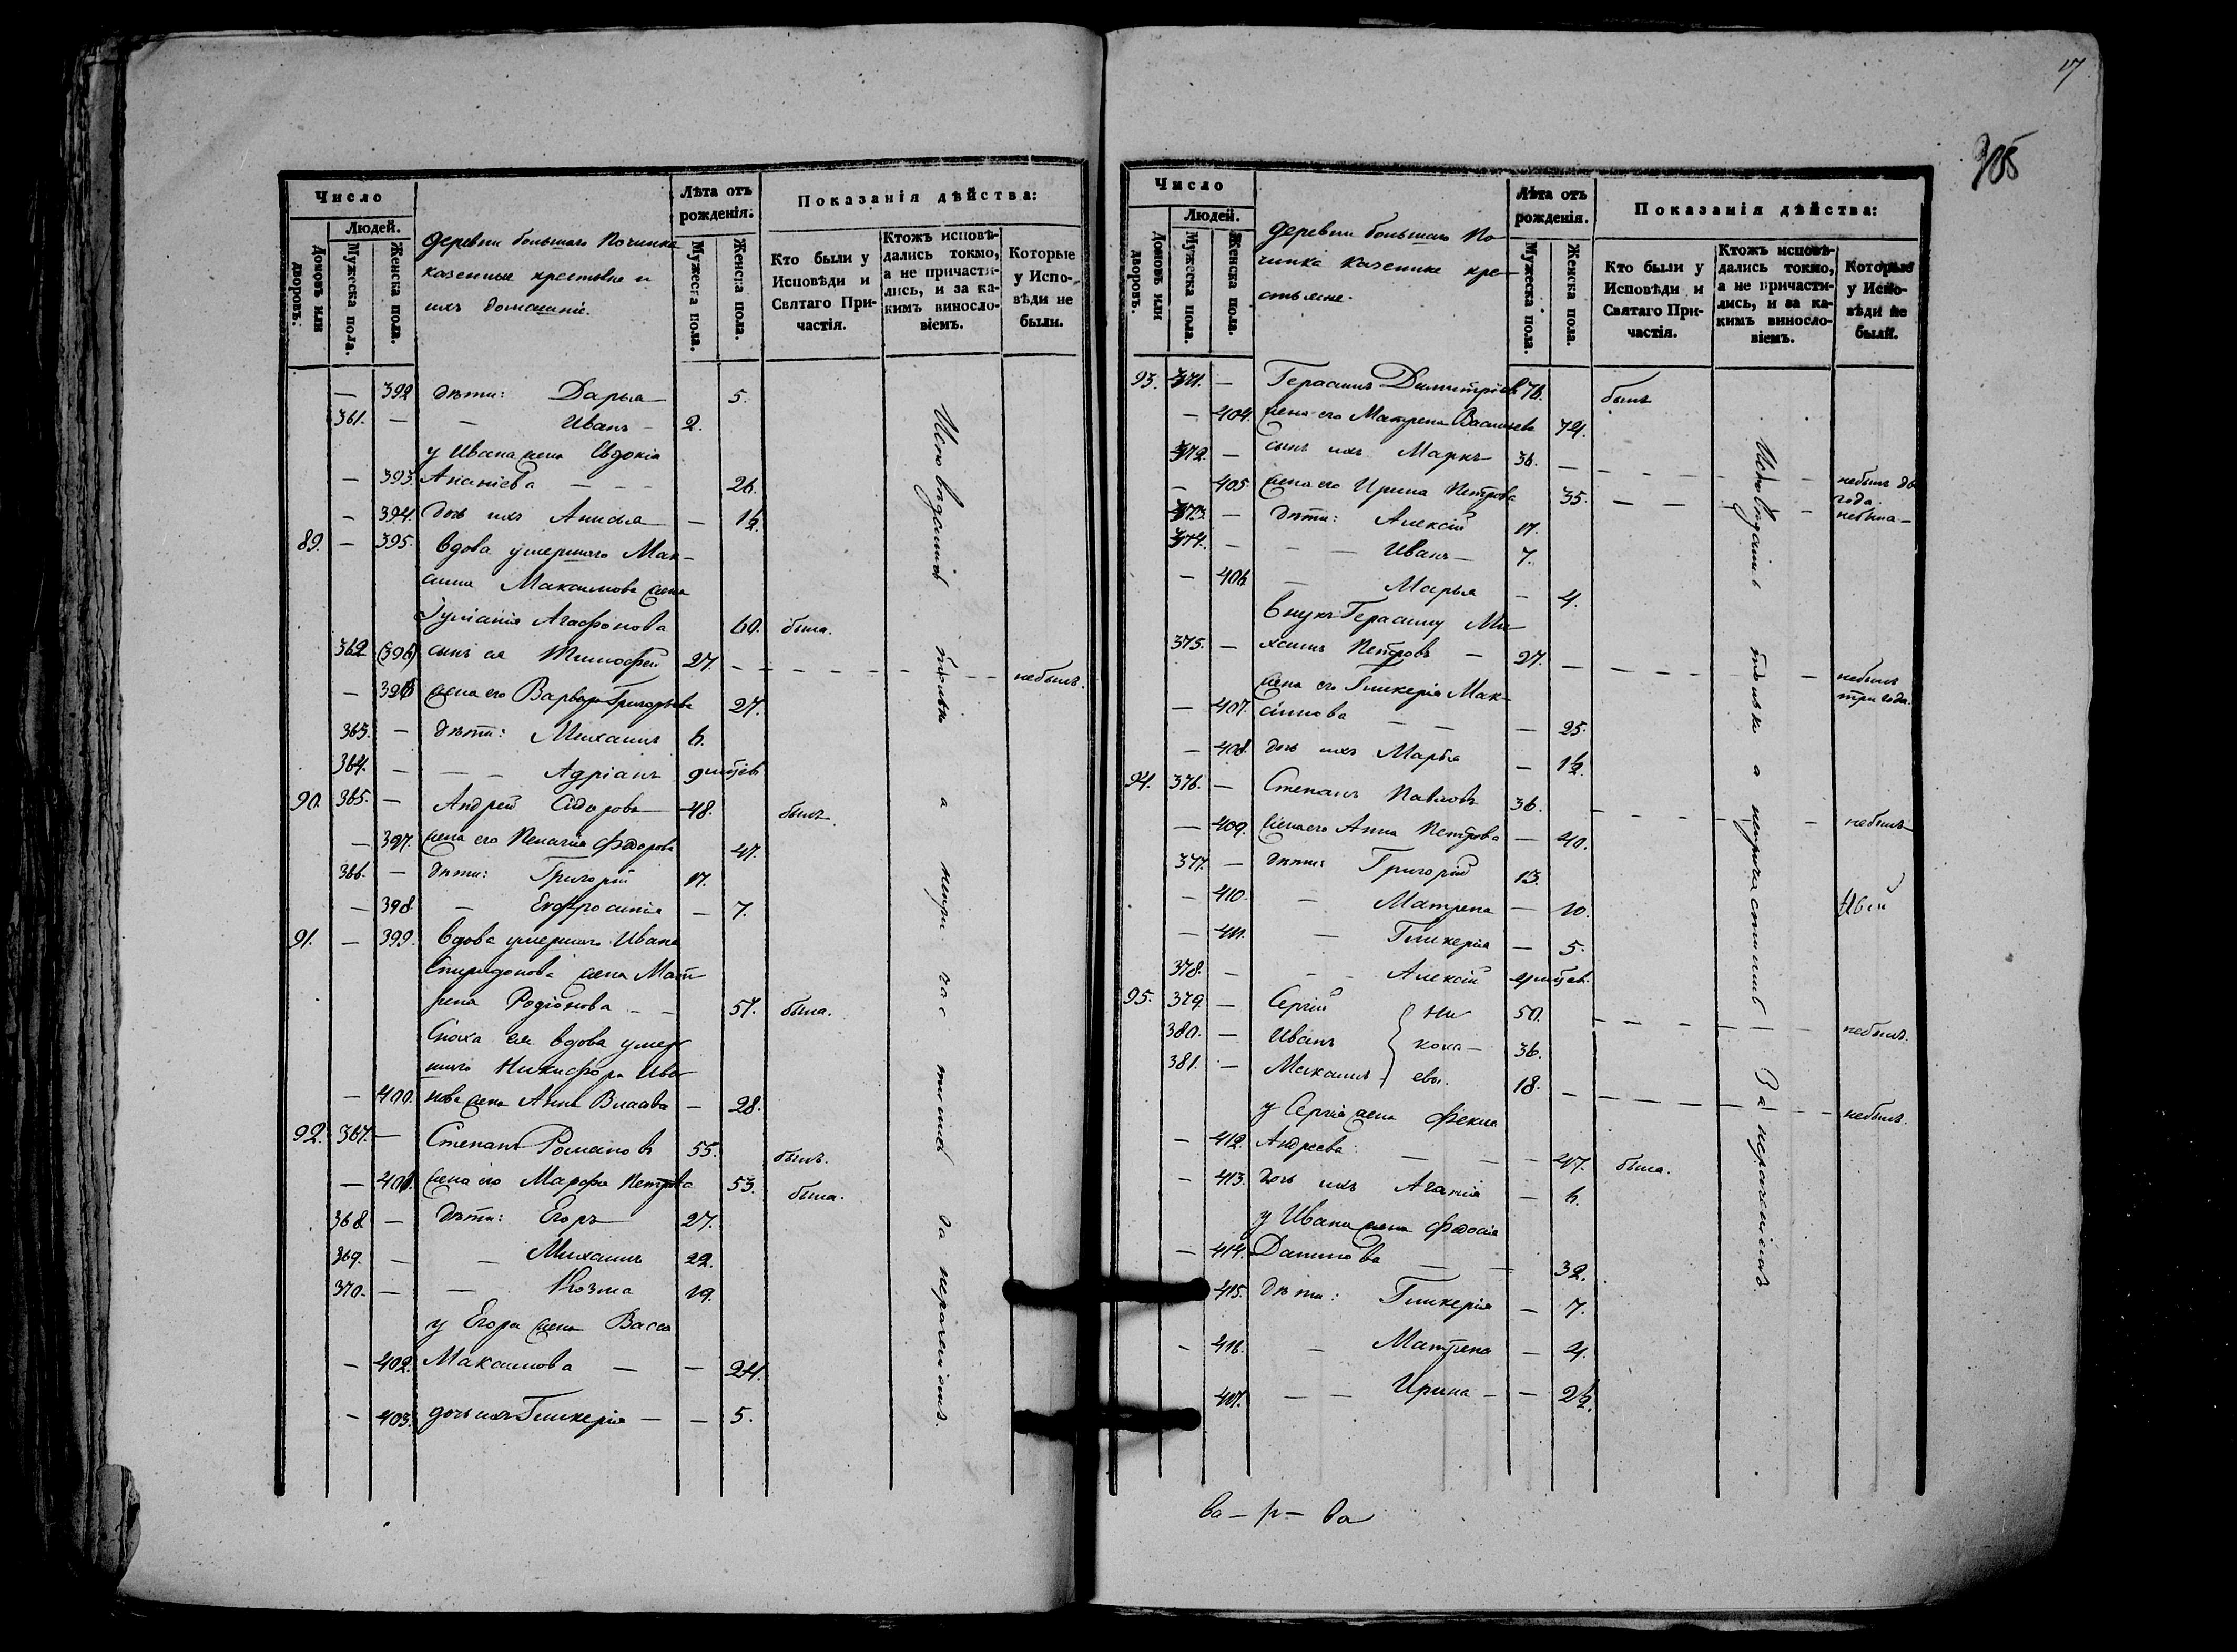 17
305
Число
Людей.
Домовъ или дворовъ.
Мужеска пола.
Женска пола.
деревни большаго Починка
казенные крестьяне и
ихъ домашніе.
Лѣта отъ рожденія.
Мужеска пола.
Женска пола.
Показанія дѣйства:
Кто были у Исповѣди и Святаго Причастія.
Ктожъ исповѣдались токмо, а не причастились, и за какимъ винословіемъ.
Которые у Исповѣди не были.
— 392 дѣти: Дарья 5.
361. — — Иванъ — 2.
у Ивана жена Евдокія
— 393. Ананіева — — — 26.
— 394. дочь ихъ Анисья — 1½.
89. — 395. вдова умершаго Мак-
сима Максимова жена
Іуліанія Агафонова 60. была.
362 (396) сынъ ея Тимофей 27. — — — — — небылъ.
— 396 жена его Варвара Григорьева 27.
363. — дѣти: Михаилъ 6.
364. — — — Адріанъ 9 мѣсяцевъ
90. 365. — Андрей Сидоровъ 48. былъ.
— 397. жена его Пелагія Федорова 47.
366. — дѣти: Григорій 17.
— 398. — Евфросинія — 7.
91. — 399. вдова умершаго Ивана
Спиридонова жена Мат-
рена Родіонова — — 57. была.
Сноха ея вдова умер-
шаго Никифора Ива-
— 400. нова жена Анна Власова — 28.
92. 367. — Степанъ Романовъ 55. былъ.
— 401. жена его Марфа Петрова 53. была.
368 — Дѣти: Егоръ 27.
369. — — Михаилъ 22.
370. — — Козма 19.
у Егора жена Васса
— 402. Максимова — — 24.
— 403. дочь ихъ Гликерія — — 5.
Исповѣдались только а непричастились за нераченіемъ.
Число
Людей.
Домовъ или дворовъ.
Мужеска пола.
Женска пола.
деревни большаго По-
чинка казенные кре-
стьяне.
Лѣта отъ рожденія.
Мужеска пола.
Женска пола.
Показанія дѣйства:
Кто были у Исповѣди и Святаго Причастія.
Ктожъ исповѣдались токмо, а не причастились, и за какимъ винословіемъ.
Которые у Исповѣди не были.
93. 371. — Герасимъ Димитріевъ 76. былъ
— 404. жена его Матрена Васильева 74.
372. — сынъ ихъ Маркъ 36. — — — — небылъ два года.
— 405. жена его Ирина Петрова 35. — — — небыла —
373. — дѣти: Алексій 17.
374. — — — Иванъ — 7.
— 406 — Марья — 4.
внукъ Герасиму Ми-
375. — хаилъ Петровъ — 27. — — — — небылъ три года.
жена его Гликерія Мак-
— 407. симова — — — 25.
— 408. дочь ихъ Марья — 1½.
94. 376. — Степанъ Павловъ 36. — — — — небылъ
— 409. жена его Анна Петрова — 40.
377. — дѣти: Григорій 13.
— 410. — Матрена — 10.
— 411. — Гликерія — 5.
378. — — Алексій 4 мѣсяцев.
95. 379. — Сергій Ни- 50. — — — — небылъ.
380. — Иванъ кола- 36.
381. — Михаилъ евы. 18. — — — — небылъ.
у Сергія жена Фекла
— 412. Андреева — — — 47. была.
— 413. дочь ихъ Агапія — 6.
у Ивана жена Федосія
— 414. Данилова — — 32.
415. дѣти: Гликерія — 7.
— 416. — Матрена — 4.
417. — — Ирина — — 2½.
Исповѣдались только а непричастились За нераченіемъ.
ва — р — ва